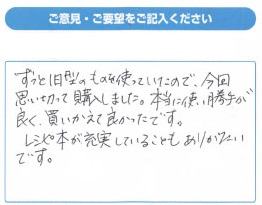 ご意見・ご要望をご記入ください
ずっと旧型のものを使っていたので、今回
思い切って購入しました。本当に使い勝手が
良く、買いかえて良かったです。
レシピ本が充実していることもありがたい
です。